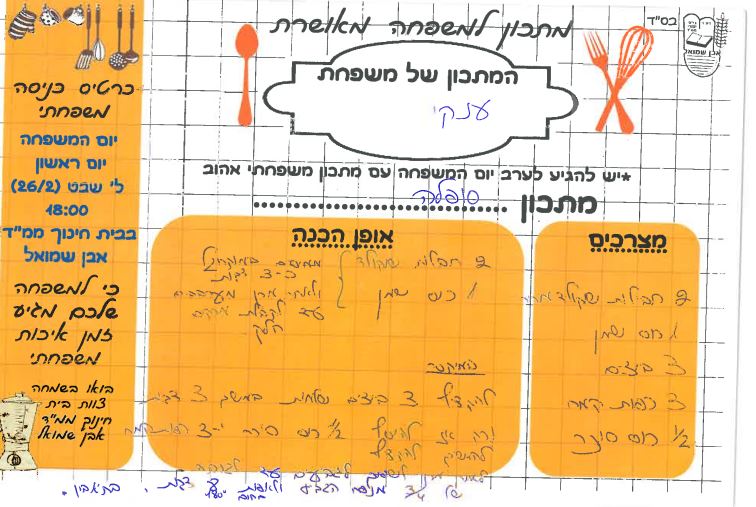 בס"ד
אבן שמואל
מתכון למשפחה מאושרת
המתכון של משפחת
ענקי
*יש להגיע לערב יום המשפחה עם מתכון משפחתי אהוב
מתכון סופלה
כרטיס כניסה
משפחתי
יום המשפחה
יום ראשון
ל' שבט (26/2)
18:00
בבית חינוך ממ"ד
אבן שמואל
כי למשפחה
שלכם מגיע
זמן איכות
משפחתי
בואו בשמחה
צוות בית
חינוך ממ"ד
אבן שמואל
מצרכים
2 חבילות שוקולד
1 כוס שמן
3 ביצים
3 כפות קמח
1/2 כוס סוכר
אופן הכנה
2 חבילות שוקולד
1 כוס שמן
ממיסים במיקרוגל
כ-3 דקות
ולאחר מכן מערבבים
עד לקבלת מרקם
חלק.
במיקסר
להקציף 3 ביצים שלמות במשך 3 דקות
להוסיף 1/2 כוס סוכר ו-3 כפות קמח
להמשיך להקציף
של 3/4 מגובה הגביע ולאפות דקות. בתאבון.
בחום 180°